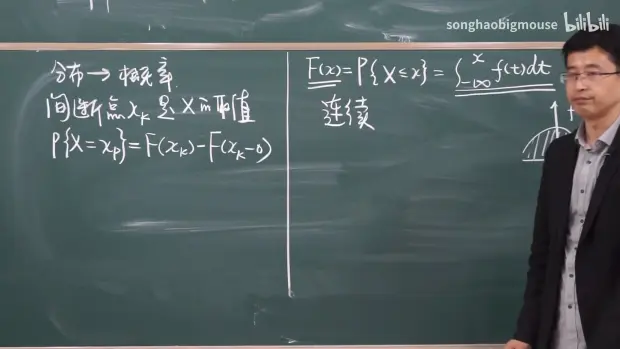 songhaobigmouse bilibili
分布→概率
间断点x_k是X的取值
P{X=x_p}=F(x_k)-F(x_k-0)
F(x)=P{X≤x}=∫_{-∞}^{x}f(t)dt
连续
f